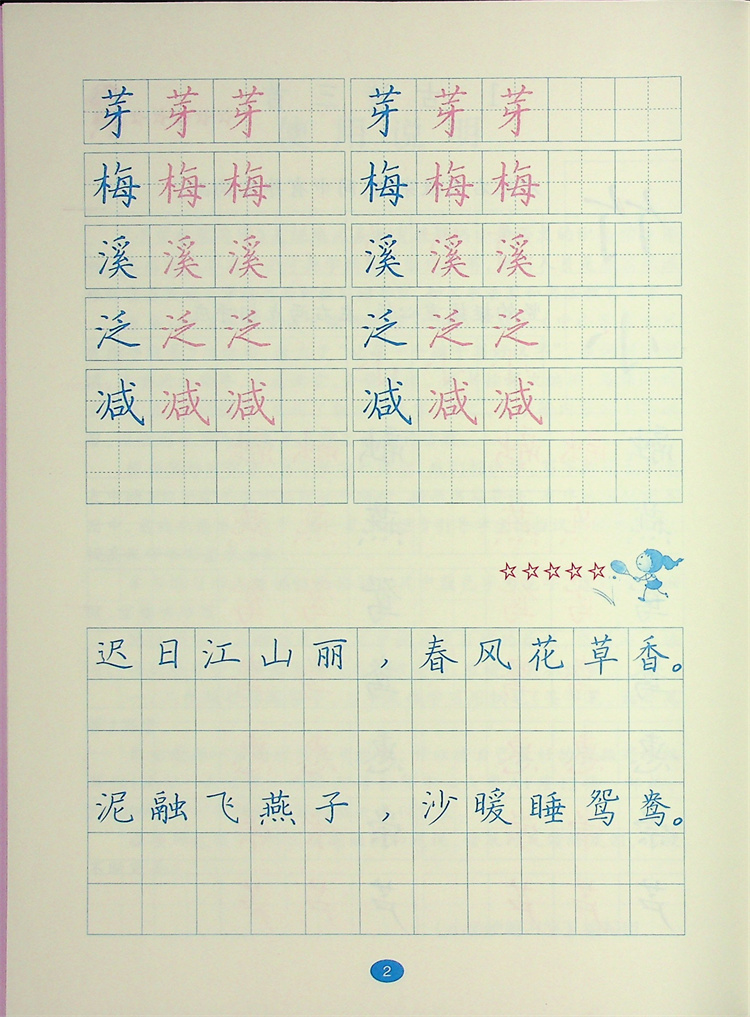 芽芽芽 芽芽芽
梅梅梅 梅梅梅
溪溪溪 溪溪溪
泛泛泛 泛泛泛
减减减 减减减
☆☆☆☆☆
迟日江山丽，春风花草香。
泥融飞燕子，沙暖睡鸳鸯。
2